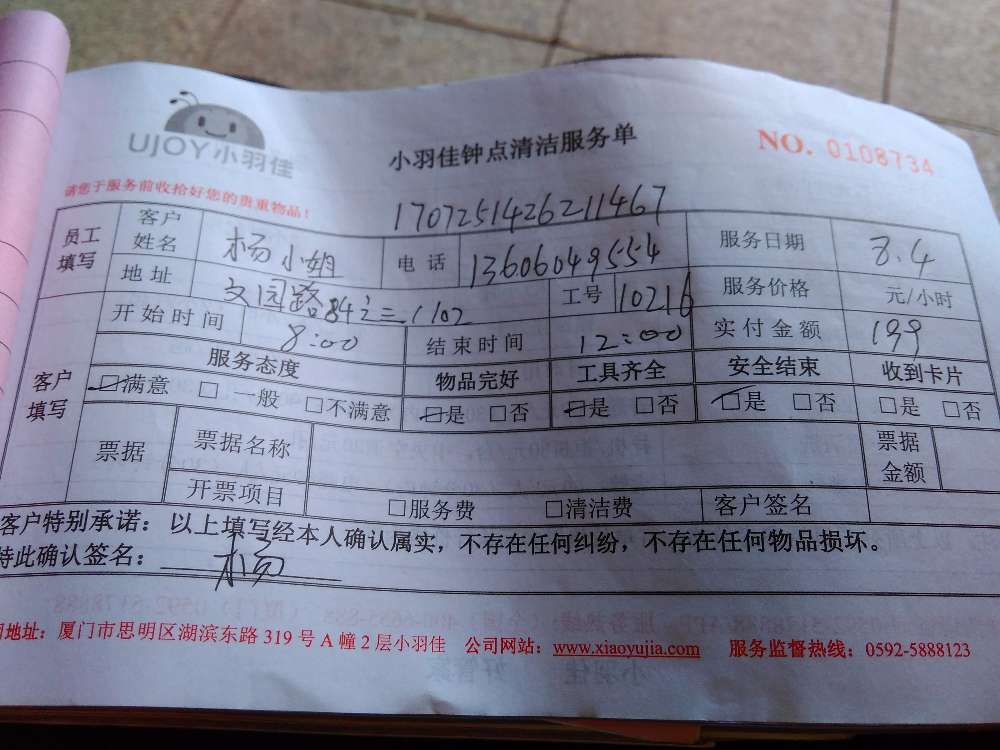 UJOY小羽佳
小羽佳钟点清洁服务单
NO. 0108734
请您于服务前收拾好您的贵重物品！
1707251426211467
员工填写 客户姓名 杨小姐 电话 13606049554 服务日期 8.4
地址 文园路84之三1102 工号 10216 服务价格 元/小时
客户填写 开始时间 8:00 结束时间 12:00 实付金额 199
服务态度 物品完好 工具齐全 安全结束 收到卡片
□满意 □一般 □不满意 □是 □否 □是 □否 □是 □否 □是 □否
票据 票据名称 票据金额
开票项目 □服务费 □清洁费 客户签名
客户特别承诺：以上填写经本人确认属实，不存在任何纠纷，不存在任何物品损坏。
特此确认签名：杨
地址：厦门市思明区湖滨东路 319 号 A 幢 2 层小羽佳 公司网站：www.xiaoyujia.com 服务监督热线：0592-5888123